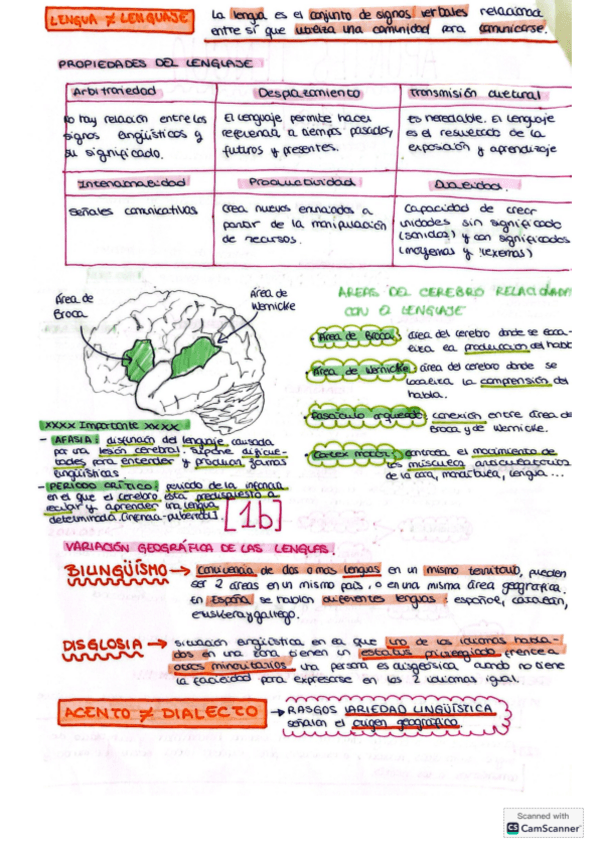 LENGUA ≠ LENGUAJE
La lengua es el conjunto de signos verbales relaciona
entre sí que utiliza una comunidad para comunicarse.
PROPIEDADES DEL LENGUAJE
Arbitrariedad
Desplazamiento
Transmisión cultural
No hay relación entre los
signos lingüísticos y
su significado.
El lenguaje permite hacer
referencia a tiempos pasados,
futuros y presentes.
es heredable. El lenguaje
es el resultado de la
exposición y aprendizaje
Intercambiabilidad
Productividad
Dualidad
señales comunicativas
crea nuevos enunciados a
partir de la manipulación
de recursos.
Capacidad de crear
unidades sin significado
(sonidos) y con significados
(morfemas y lexemas)
Área de
Broca
Área de
Wernicke
AREAS DEL CEREBRO RELACIONADA
CON EL LENGUAJE
Área de Broca: área del cerebro donde se loca-
liza la producción del habl
Área de Wernicke: área del cerebro donde se
localiza la comprensión del
habla.
Fascículo arqueado: conexión entre área de
Broca y de Wernicke.
Cortex motor: controla el movimiento de
los músculos articulatorios
de la cara, mandíbula, lengua...
xxxx Importante xxxx
- AFASIA: disfunción del lenguaje causada
por una lesión cerebral. Supone dificul-
tades para entender y producir formas
lingüísticas.
- PERIODO CRÍTICO: periodo de la infancia
en el que el cerebro está predispuesto a
recibir y aprender una lengua
determinada (infancia-pubertad).
[1b]
VARIACIÓN GEOGRÁFICA DE LAS LENGUAS.
BILINGÜÍSMO → convivencia de dos o más lenguas en un mismo territorio, pueden
ser 2 áreas en un mismo país, o en una misma área geográfica.
En España se hablan diferentes lenguas: español, catalán,
euskera y gallego.
DISGLOSIA → situación lingüística en la que uno de los idiomas habla-
dos en una zona tienen un estatus privilegiado frente a
otros minoritarios. una persona es disglósica cuando no tiene
la facilidad para expresarse en los 2 idiomas igual.
ACENTO ≠ DIALECTO → RASGOS VARIEDAD LINGÜÍSTICA
señalan el origen geográfico.
Scanned with
CS CamScanner